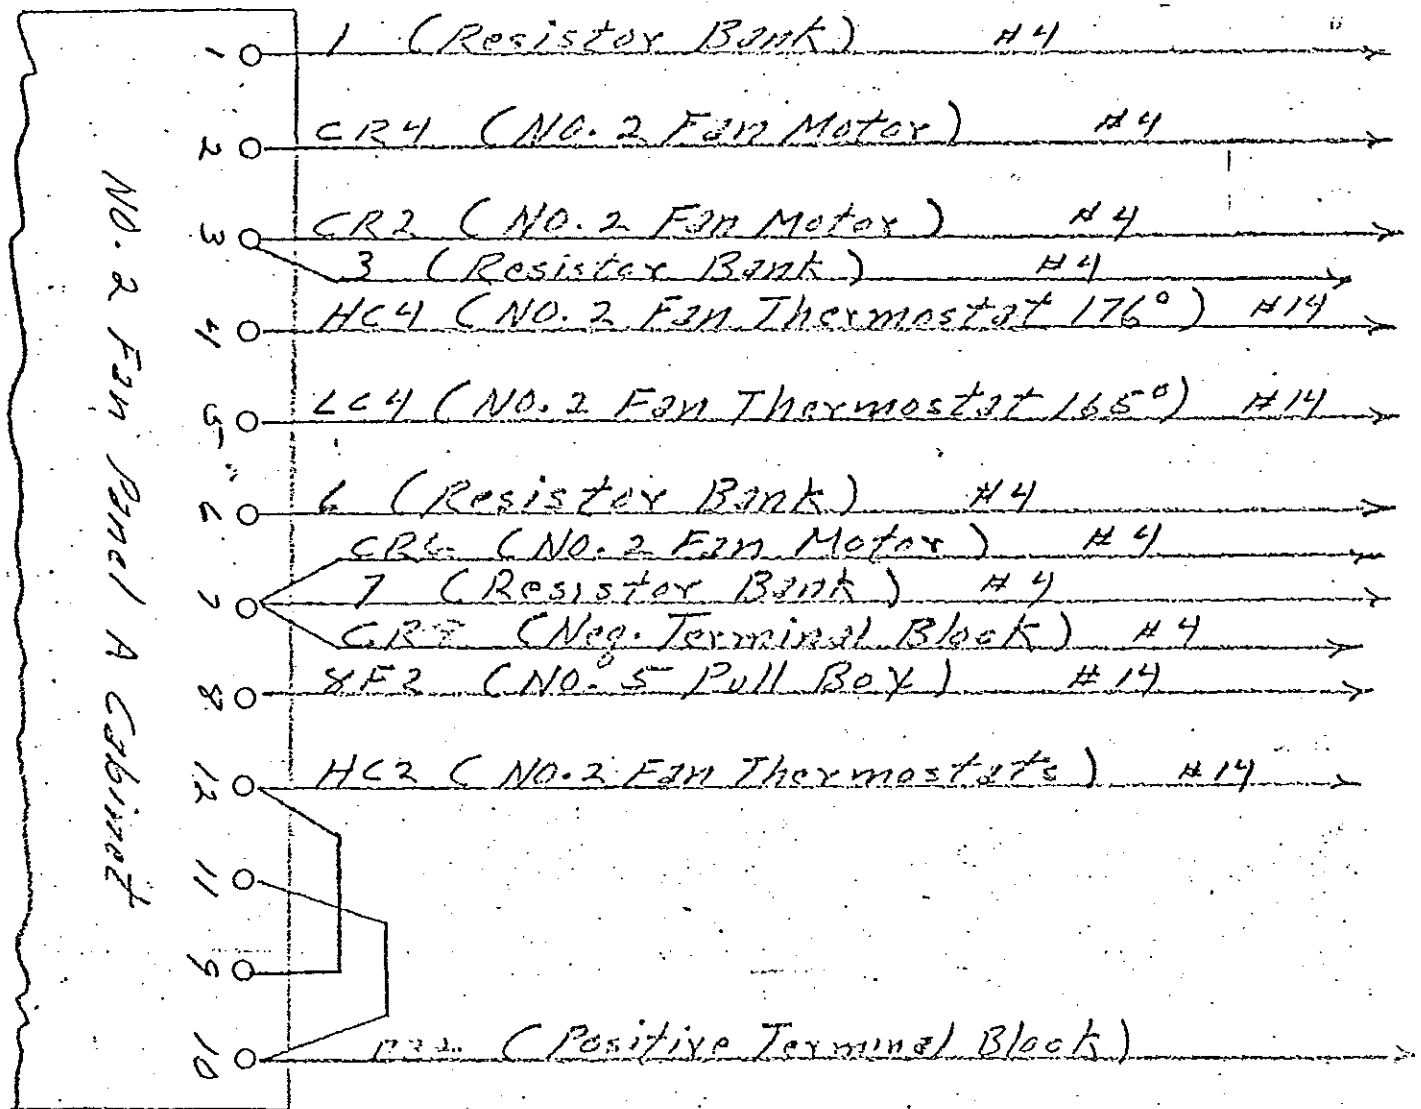 NO. 2 Fan Panel A Cabinet
1 1 (Resistor Bank) #4
2 CR4 (NO. 2 Fan Motor) #4
3 CR2 (NO. 2 Fan Motor) #4
3 (Resistor Bank) #4
4 HC4 (NO. 2 Fan Thermostat 176°) #14
5 LC4 (NO. 2 Fan Thermostat 165°) #14
6 6 (Resistor Bank) #4
CR6 (NO. 2 Fan Motor) #4
7 7 (Resistor Bank) #4
(Neg. Terminal Block) #4
8 8F2 (NO. 5 Pull Box) #14
12 HC2 (NO. 2 Fan Thermostats) #14
11
9
10 (Positive Terminal Block)